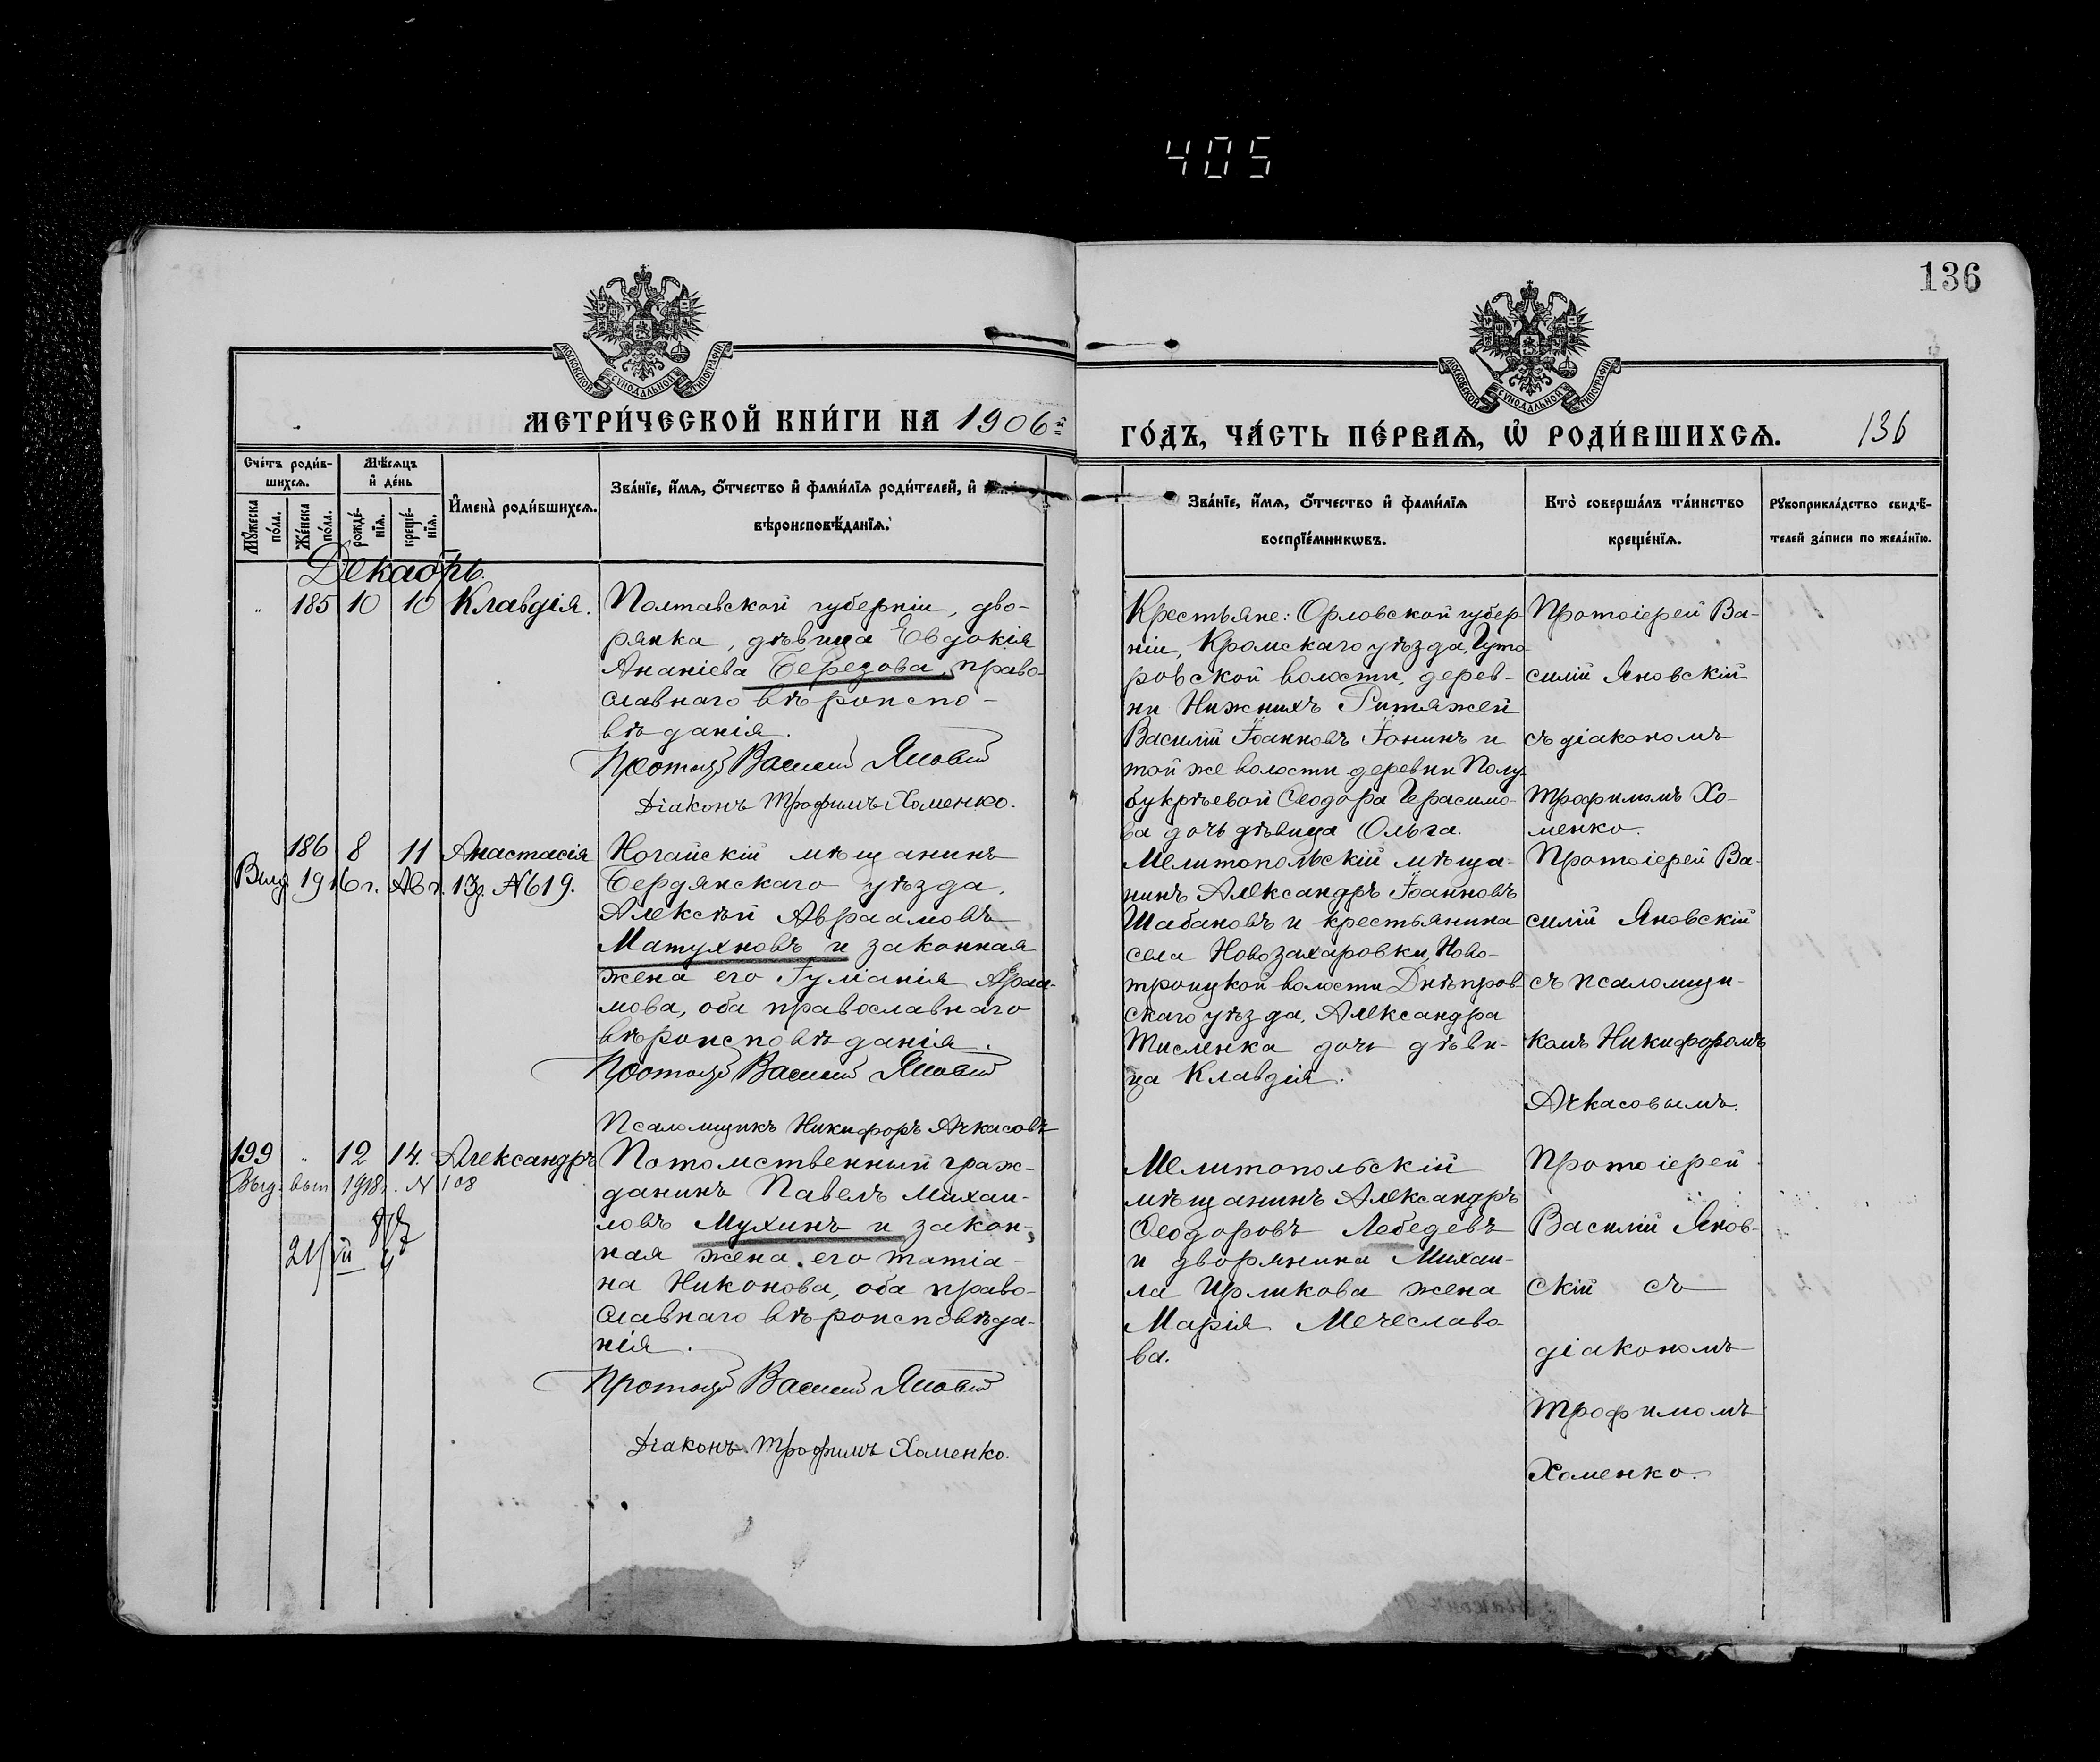 405
136
МОСКОВСКОЙ СѴНОДАЛЬНОЙ ТИПОГРАФІИ
МОСКОВСКОЙ СѴНОДАЛЬНОЙ ТИПОГРАФІИ
МЕТРИ́ЧЕСКОЙ КНИ́ГИ НА 1906й
ГО́ДЪ, ЧА́СТЬ ПЕ́РВАѦ, Ѡ РОДИ́ВШИХСѦ. 136
Сче́тъ роди́в-
шихсѧ.
Мѣ́сѧцъ
и҆ де́нь
Мꙋ́жеска
по́ла.
Же́нска
по́ла.
рожде́-
нїѧ.
креще́-
нїѧ.
И҆мена̀ роди́вшихсѧ.
Зва́нїе, и҆́мѧ, ѻ҆́тчество и҆ фами́лїѧ роди́телей, и҆
вѣроисповѣ́данїѧ.
Зва́нїе, и҆́мѧ, ѻ҆́тчество и҆ фами́лїѧ
воспрїе́мникѡвъ.
Кто̀ соверша́лъ та́инство
креще́нїѧ.
Рꙋкоприкла́дство свидѣ́-
телей за́писи по жела́нїю.
Декабрь.
185 10 10 Клавдія.
Полтавской губерніи, дво-
рянка, дѣвица Евдокія
Ананіева Березова, право-
славнаго вѣроиспо-
вѣданія.
Протоіер Василій Яновскій
Діаконъ Трофимъ Хоменко.
Крестьяне: Орловской губер-
ніи, Кромскаго уѣзда, Гуто
ровской волости, дерев-
ни Нижнихъ
Василій Іоанновъ Іонинъ и
той же волости деревни Полу
букрѣевой Ѳеодора Герасимо-
ва дочь дѣвица Ольга.
Протоіерей Ва-
силій Яновскій
съ діакономъ
Трофимомъ Хо-
менко.
186 8 11 Анастасія
Выд. 1916 г. Авг. 13д. №619.
Ногайскій мѣщанинъ
Бердянскаго уѣзда,
Алексѣй Авраамовъ
Матухновъ и законная
жена его Іуліанія Авраа-
мова, оба православнаго
вѣроисповѣданія.
Протоіер Василій Яновскій
Псаломщикъ Никифоръ Ачкасовъ
Мелитопольскій мѣща-
нинъ Александръ Іоанновъ
Шабановъ и крестьянина
села Новозахаровки, Ново-
троицкой волости Днѣпров
скаго уѣзда, Александра
Тисленка дочь дѣви-
ца Клавдія.
Протоіерей Ва-
силій Яновскій
съ псаломщи-
комъ Никифоромъ
Ачкасовымъ.
199 12 14. Александръ
Выд. вып. 1918 г. № 108
Потомственный граж-
данинъ Павелъ Михаи-
ловъ Мухинъ и закон-
ная жена его Татіа-
на Никонова, оба право-
славнаго вѣроисповѣда-
нія.
Протоіер Василій Яновскій
Діаконъ Трофимъ Хоменко.
Мелитопольскій
мѣщанинъ Александръ
Ѳеодоровъ Лебедевъ
и дворянина Михаи-
ла жена
Марія Мечеславо
ва.
Протоіерей
Василій Янов-
скій съ
діакономъ
Трофимомъ
Хоменко.